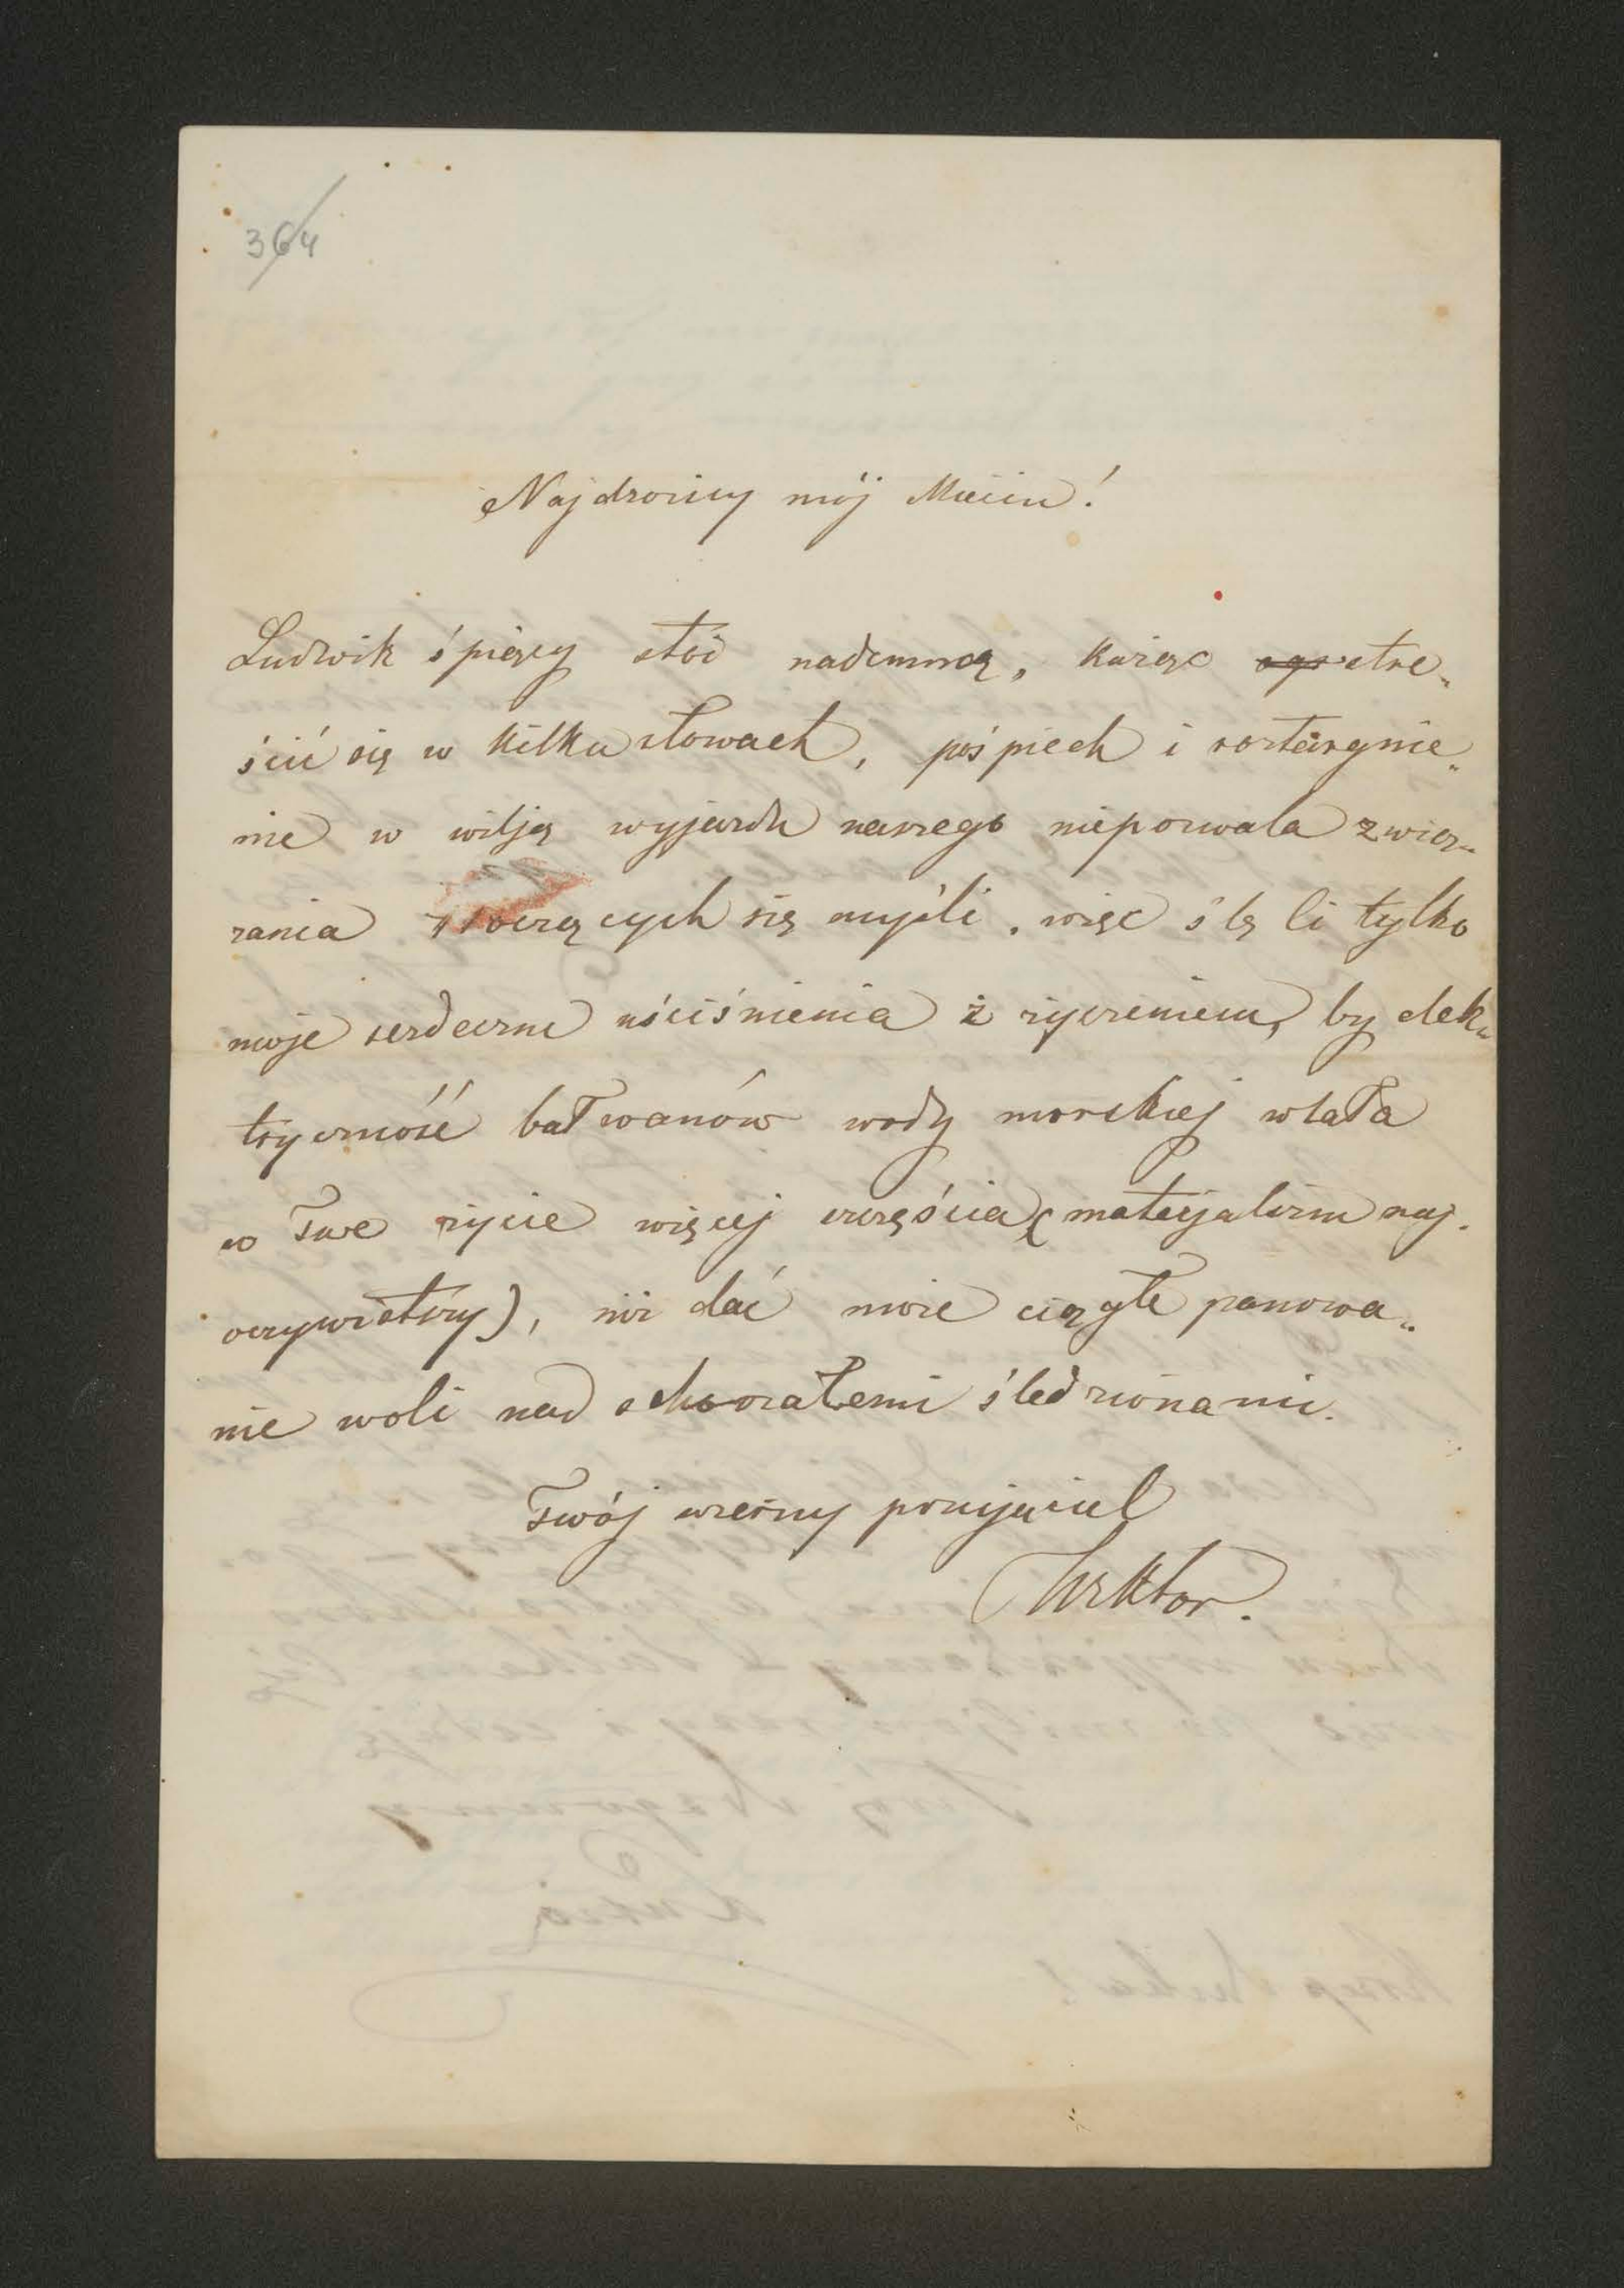 364
Najdroższy mój Mieciu!
Ludwik śpiący stoi nademną, każąc stre„
ścić się w kilku słowach, pośpiech i roztargnie„
nie w wilją wyjazdu naszego niepozwala zwią„
zania tłoczących się myśli, więc ślę li tylko
moje serdeczne uściśnienia z życzeniem, by elek„
tryczność bałwanów wody morskiej wlała
w Twe życie więcej szczęścia (materjalizm naj„
oczywistszy), niż dać może ciągłe panowa„
nie woli nad schorzałemi śledzionami.
Twój wierny przyjaciel
Wiktor.